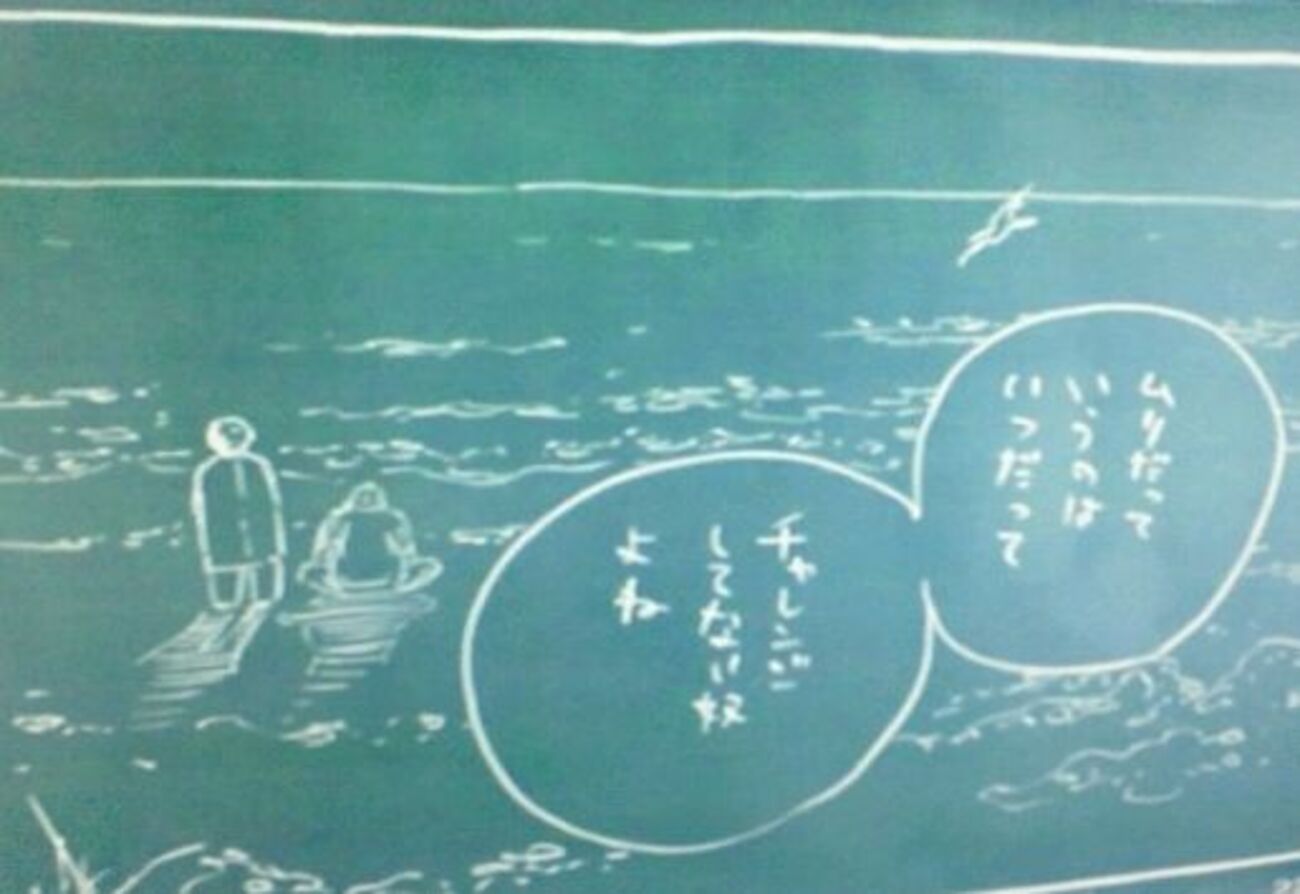 ムリだって
いうのは
いつだって
チャレンジ
してない奴
よね